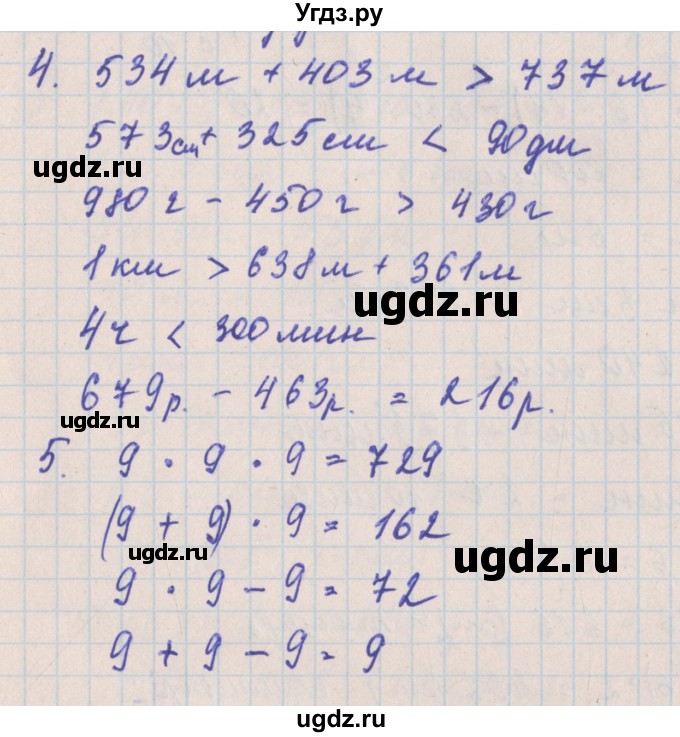 Угдз.ру
4. 534 м + 403 м > 737 м
573 см + 325 см < 90 дм
ugdz.ru
980 г - 450 г > 430 г
1 км > 638 м + 361 м
ugdz.ru
4 ч < 300 мин
679 р. - 463 р. = 216 р.
ugdz.ru
5. 9 · 9 · 9 = 729
(9 + 9) · 9 = 162
ugdz.ru
ugdz.ru
9 · 9 - 9 = 72
9 + 9 - 9 = 9
ugdz.ru